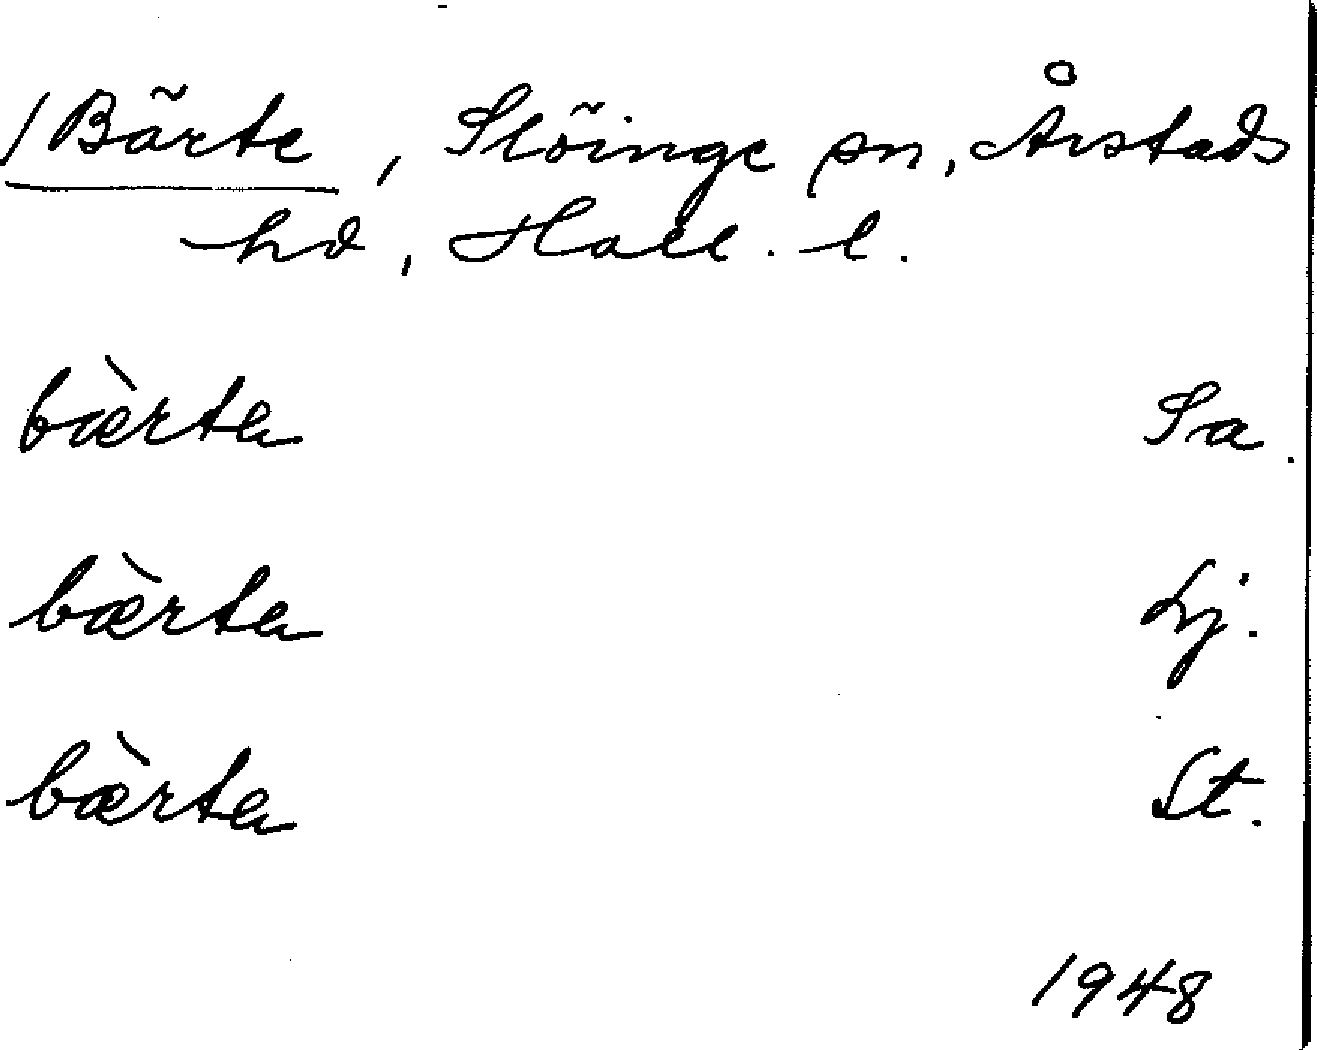 /Bärte, Slöinge sn, Årstads
hd, Hall. l.
bæ̀rta Sa.
bæ̀rta Lj.
bæ̀rta St.
1948